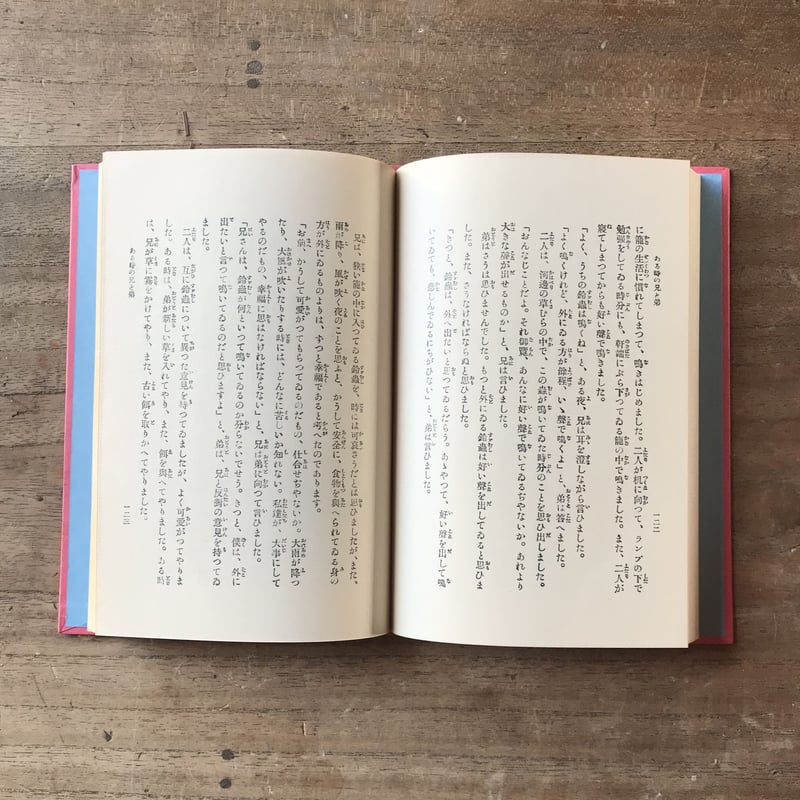 ある時の兄と弟
一二二
に籠の生活に慣れてしまつて、鳴きはじめました。二人が机に向つて、ランプの下で
勉強をしてゐる時分にも、軒端にぶら下つてゐる籠の中で鳴きました。また、二人が
寢てしまつてからも好い聲で鳴きました。
「よく、うちの鈴蟲は鳴くね」と、ある夜、兄は耳を澄しながら言ひました。
「よく鳴くけれど、外にゐる方が餘程、いゝ聲で鳴くよ」と、弟は答へました。
二人は、河邊の草むらの中で、この蟲が鳴いてゐた時分のことを思ひ出しました。
「おんなじことだよ。それ御覽、あんなに好い聲で鳴いてゐるぢやないか。あれより
大きな聲が出せるものか」と、兄は言ひました。
弟はさうは思ひませんでした。もつと外にゐる鈴蟲は好い聲を出してゐると思ひま
した。また、さうなければならぬと思ひました。
「きつと、鈴蟲は、外へ出たいと思つてゐるだらう。あゝやつて、好い聲を出して鳴
いてゐても、悲しんでゐるにちがひない」と、弟は言ひました。
兄は、狹い籠の中に入つてゐる鈴蟲を、時には可哀さうだとは思ひましたが、また、
雨が降り、風が吹く夜のことを思ふと、かうして安全に、食物を與へられてゐる身の
方が外にゐるものよりは、ずつと幸福であると考へたのであります。
「お前、かうして可愛がつてもらつてゐるのだもの、仕合せぢやないか。大雨が降つ
たり、大風が吹いたりする時には、どんなに苦しいか知れない。私達が、大事にして
やるのだもの、幸福に思はなければならない」と、兄は弟に向つて言ひました。
「兄さんは、鈴蟲が何といつて鳴いてゐるのか分らないでせう。きつと、僕は、外に
出たいと言つて鳴いてゐるのだと思ひますよ」と、弟は、兄と反對の意見を持つてゐ
ました。
二人は、互に鈴蟲について異つた意見を持つてゐましたが、よく可愛がつてやりま
した。ある時は、弟が新しい草を入れてやり、また、餌を與へてやりました。ある時
は、兄が草に霧をかけてやり、また、古い餌を取りかへてやりました。
ある時の兄と弟
一二三